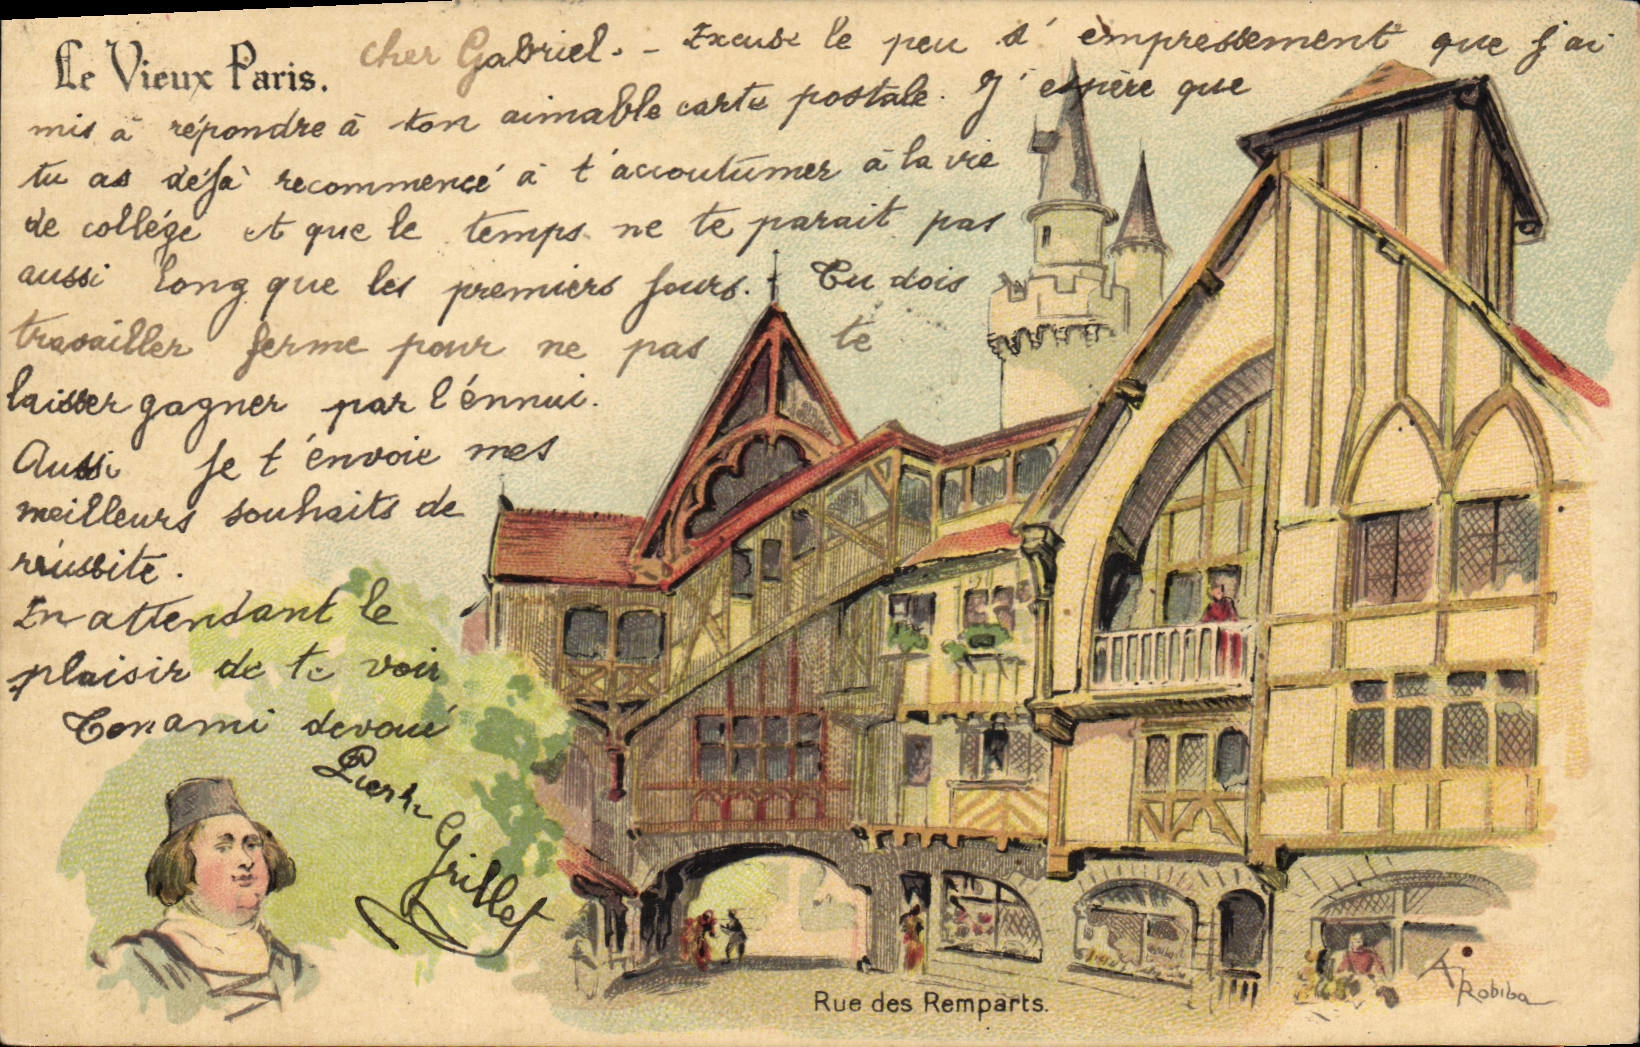 Le Vieux Paris.
cher Gabriel. - Excuse le peu d'empressement que j'ai
mis à répondre à ton aimable carte postale. J'espère que
tu as déjà recommencé à t'accoutumer à la vie
de collége et que le temps ne te parait pas
aussi long que les premiers jours. Tu dois
travailler ferme pour ne pas te
laisser gagner par l'énnui.
Aussi je t'énvoie mes
meilleurs souhaits de
réussite.
En attendant le
plaisir de te voir
Ton ami dévoué
Pierre
Grillet
Rue des Remparts.
A Robida